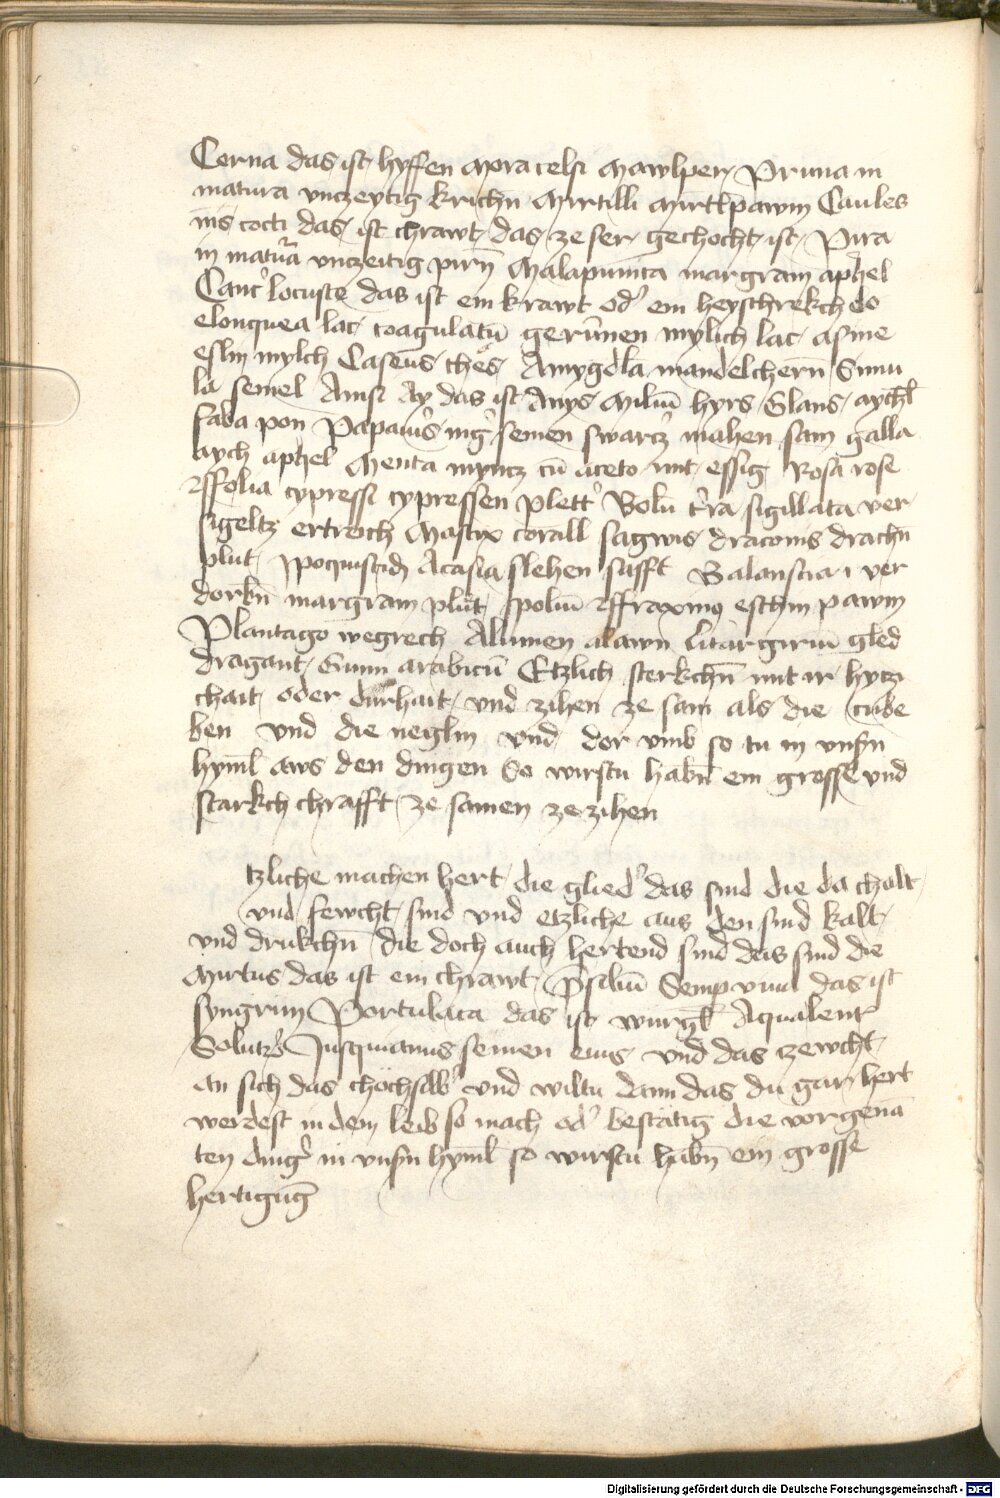 Corna das ist hyffen Mora celsi Mawlper Pruna in
matura vnczeytig krichn̄ Mirtilli mirtlpawm Caules
nis cocti das ist chrawt das ze ser gechocht ist Pira
in matura vnczeitig pirn̄ Malapunica margram aphel
Canc locuste das ist ein krawt od' ein heyschrekch do
elonquea lac coagulatū gerūnen mylich lac asine
eslin mylch Caseus ches Amygdla mandelchern̄ Simi
la semel Anisi Ay das ist Anys Miliū hyrs Glans aychl
faba pon Papauis nig' semen swarcz mahen sam galla
aych aphel Menta myncz cū aceto mit essig Rosa rose
folia cypressi cypressen plett' Bolū t'ra sigillata ver
sigeltz ertreich Mastix corall sagwis draconis drachn̄
plut ypoquistid Acasia slehen safft Balanstia i ver
dorbn̄ margram plüt spoliū ffraxinus eschin pawm
Plantago wegrech Alumen alawn litargiriū gled
dragant Gumi arabicū Etzlich sterkchn̄ mit ir hytzi
chait oder dürhait vnd zihen ze sam als die cube
ben vnd die neglin vnd dor vmb so tu in vnsn
hyml aws den dingen So wirstu habn̄ ein grosse vnd
starkch chrafft ze samen ze zihen
tzliche machen hert die glied' das sind die da chalt
vnd fewcht sind vnd etzliche aus den sind kalt
vnd drukchn̄ die doch auch hertend sind das sind die
Mirtus das ist ein chrawt Psiliū Semp viui das ist
syngrün Portulaca das ist wurgl Aqualent'
Solutz' Jusquiamus semen eius vnd das zewcht
an sich das chöchsilb' vnd wiltu dann das du gar hert
werdest in dem leib so mach od' bestätig die vorgenā
ten ding' in vnsn hyml so wirstu habn̄ ein grosse
hertigūg
Digitalisierung gefördert durch die Deutsche Forschungsgemeinschaft - DFG